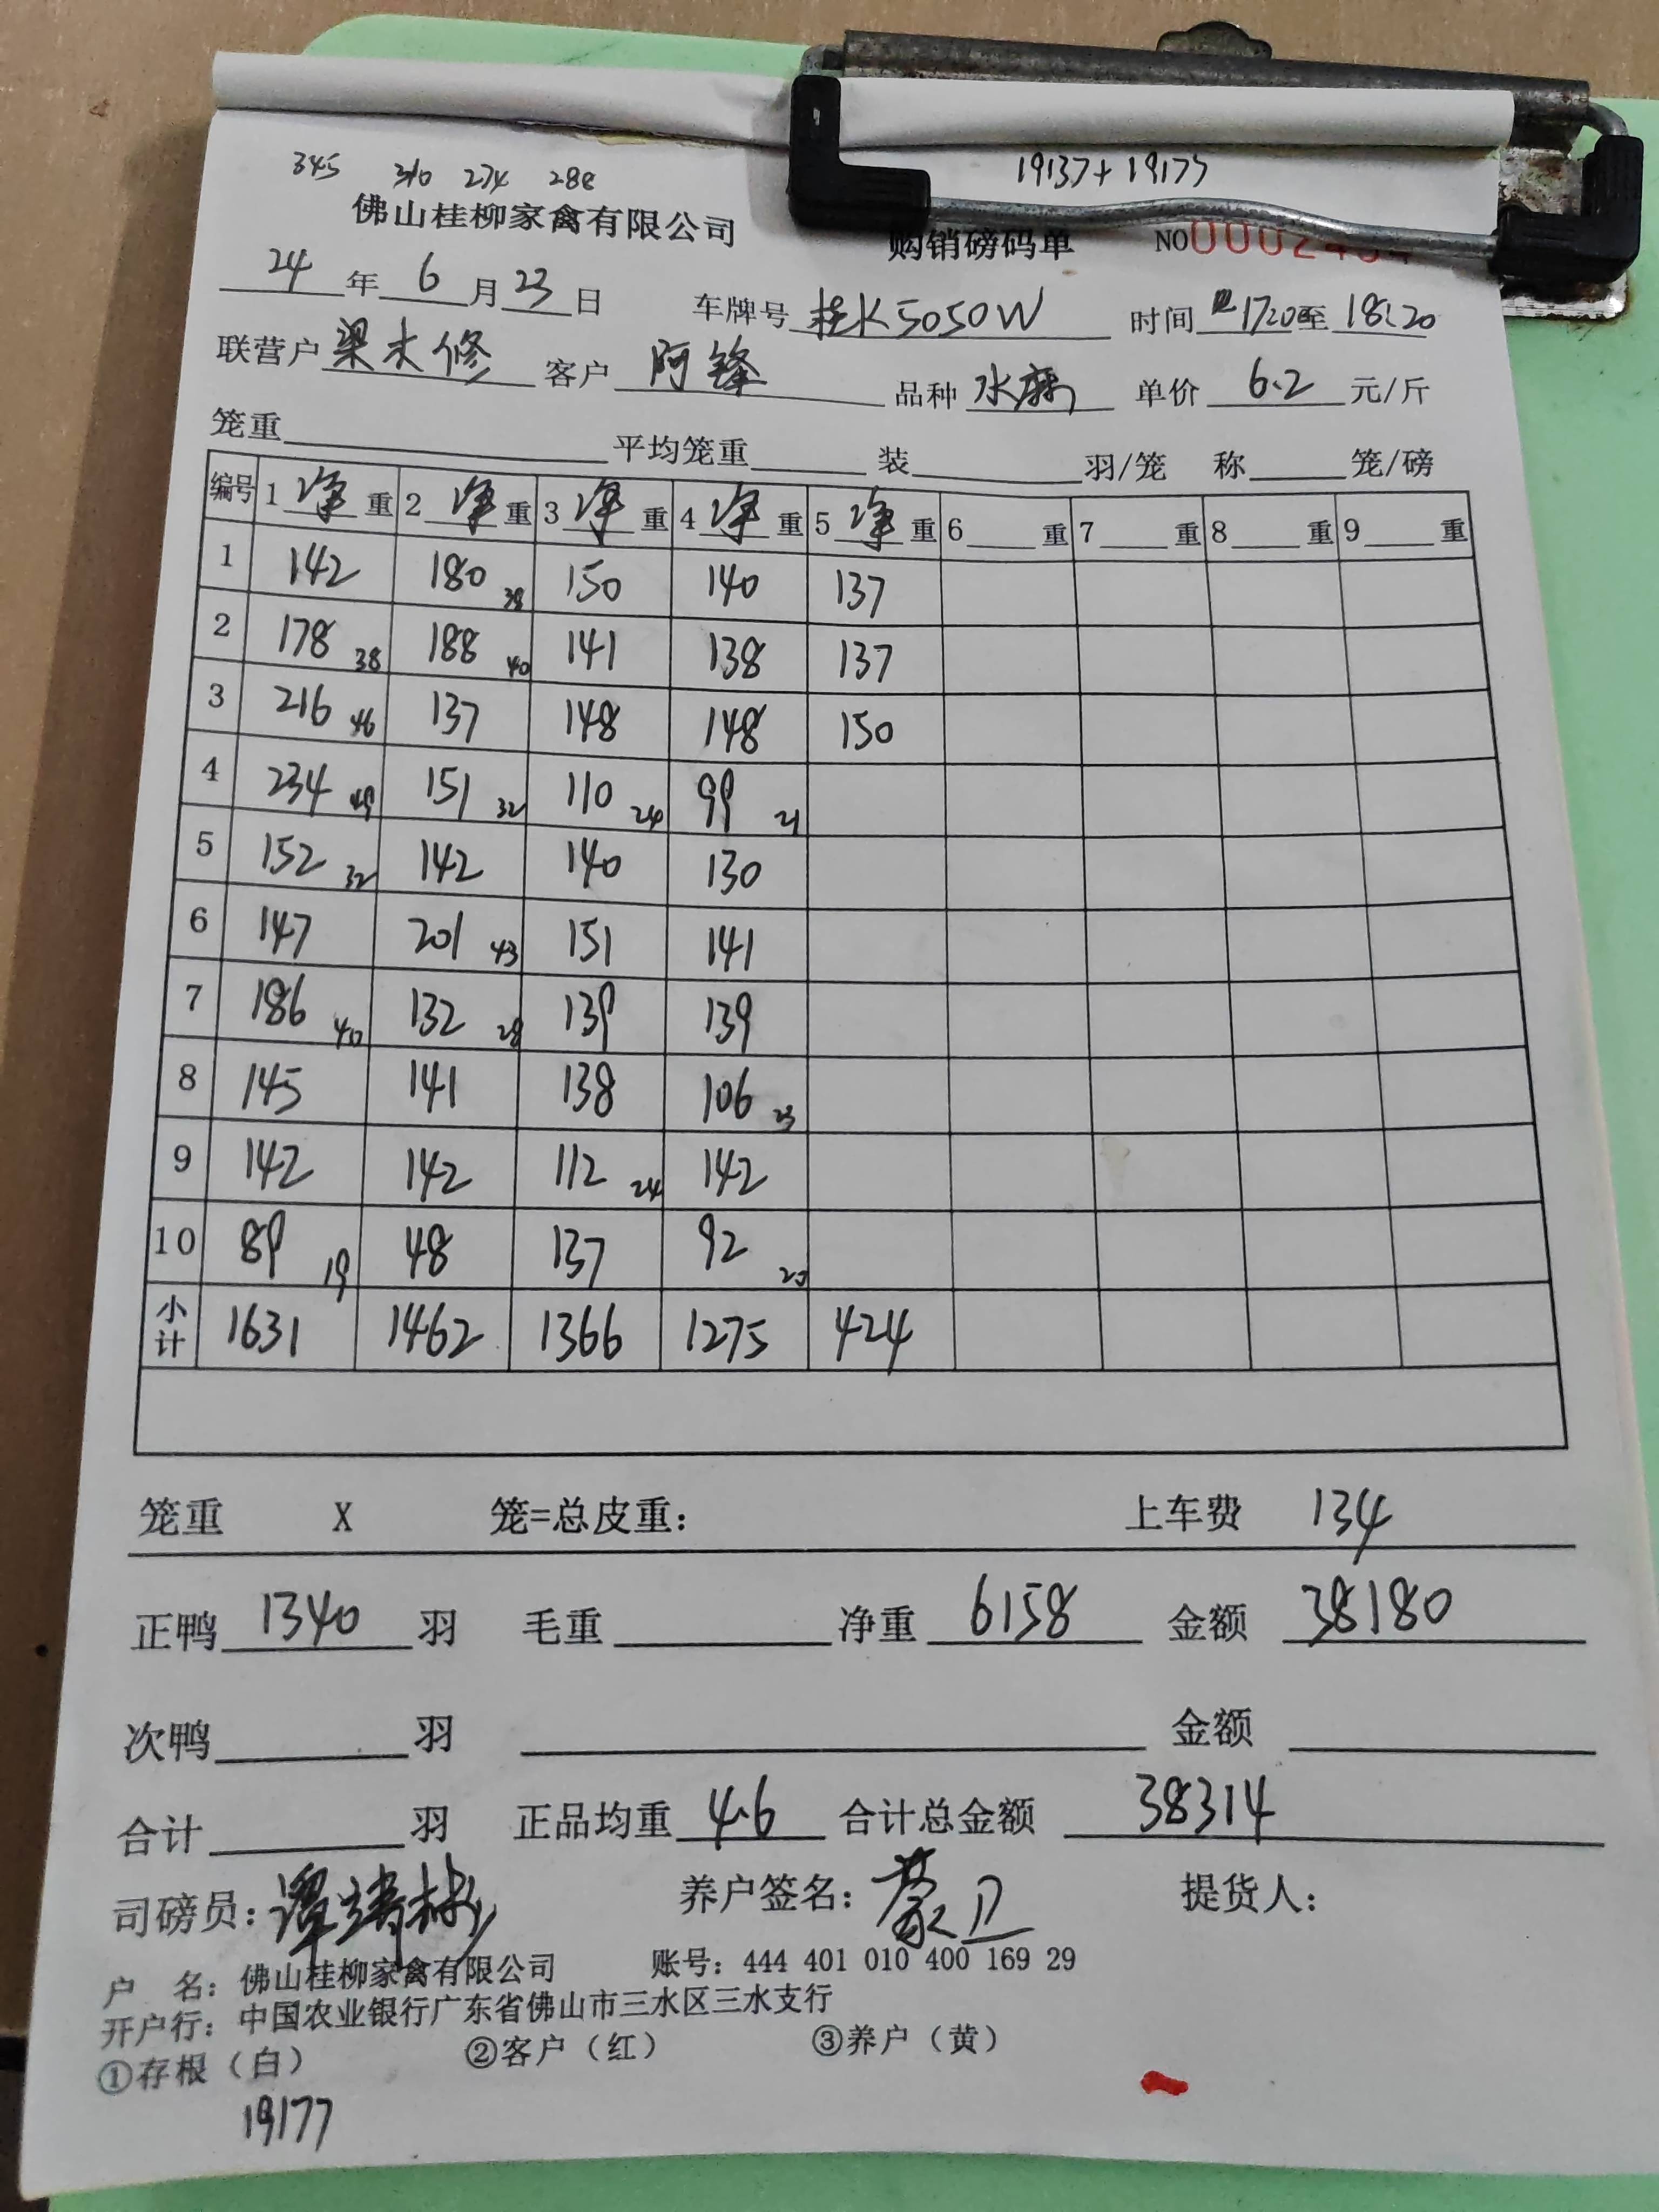 345 310 274 288 19137+19177
佛山桂柳家禽有限公司 购销磅码单 NO
24 年 6 月 23 日 车牌号 桂K5050W 时间 1720 至 18:20
联营户 梁木修 客户 阿锋 品种 水麻 单价 6.2 元/斤
笼重 平均笼重 装 羽/笼 称 笼/磅
编号 1 净 重 2 净 重 3 净 重 4 净 重 5 净 重 6 重 7 重 8 重 9 重
1 142 180 38 150 140 137
2 178 38 188 40 141 138 137
3 216 46 137 148 148 150
4 234 49 151 32 110 24 99 21
5 152 32 142 140 130
6 147 201 43 151 141
7 186 40 132 28 139 139
8 145 141 138 106 23
9 142 142 112 24 142
10 89 19 48 137 92 20
小计 1631 1462 1366 1275 424
笼重 X 笼=总皮重: 上车费 134
正鸭 1340 羽 毛重 净重 6158 金额 38180
次鸭 羽 金额
合计 羽 正品均重 4.6 合计总金额 38314
司磅员: 养户签名: 蒙卫 提货人:
户 名: 佛山桂柳家禽有限公司 账号: 444 401 010 400 169 29
开户行: 中国农业银行广东省佛山市三水区三水支行
①存根（白） ②客户（红） ③养户（黄）
19177